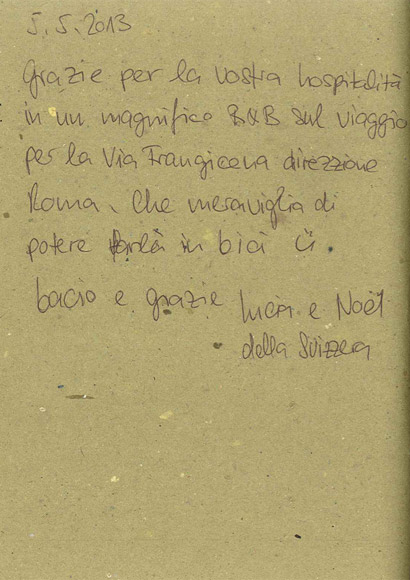 5.5.2013
Grazie per la vostra hospitalità
in un magnifico B&B sul viaggio
per la Via Frangicena direzzione
Roma. Che meraviglia di
potere farla in bici ü.
bacio e grazie Lucia e Noël
della Svizzera